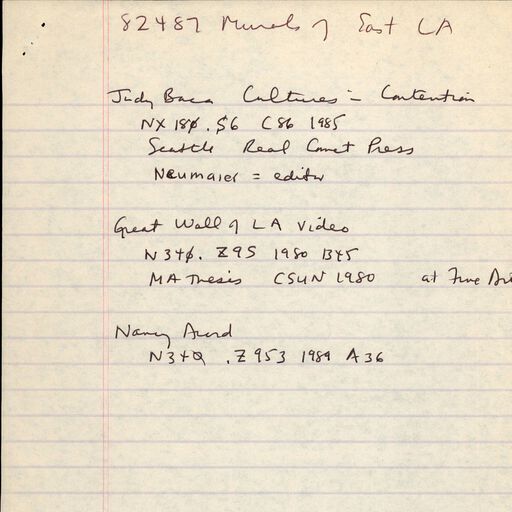 82487 Murals of East LA
Judy Baca Cultures in Contention
NX 180 .S6 C86 1985
Seattle Real Comet Press
Neumaier = editor
Great Wall of LA Video
N340. Z95 1980 B45
MA Thesis CSUN 1980 at Fine Art
Nancy
N340 .Z953 1989 A36